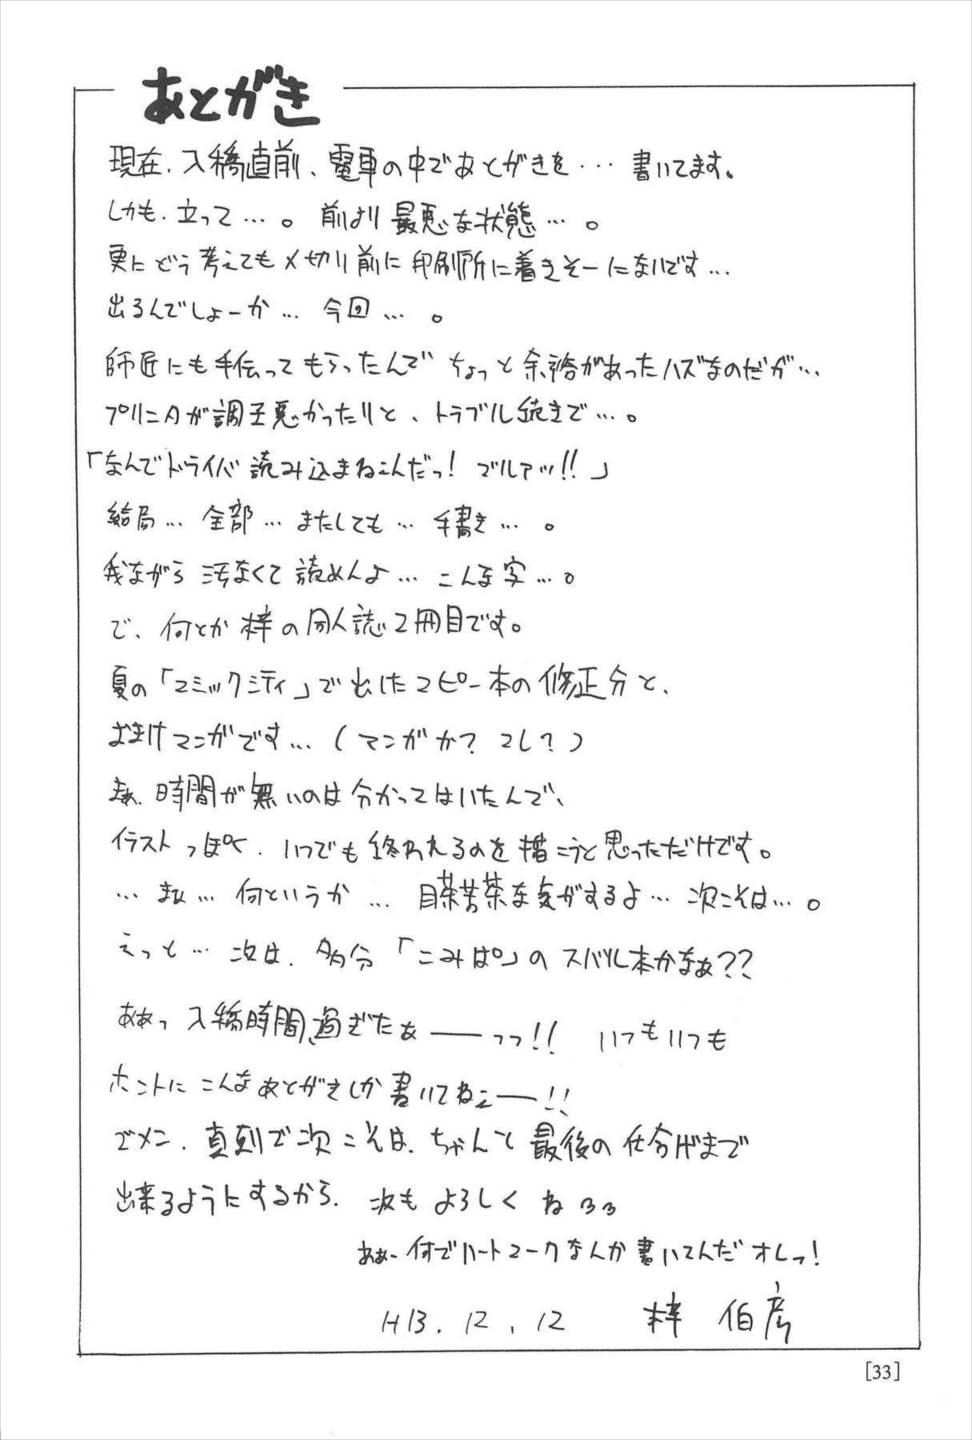 あとがき
現在、入稿直前、電車の中であとがきを…書いてます。
しかも、立って…。前より最悪な状態…。
更にどう考えても〆切り前に印刷所に着きそーにないです…
出るんでしょーか…今回…。
師匠にも手伝ってもらったんでちょっと余裕があったハズなのだが…
プリンタが調子悪かったりと、トラブル続きで…。
「なんでドライバ読み込まねェんだっ!ゴルァッ!!」
結局…全部…またしても…手書き…。
我ながら汚なくて読めんよ…こんな字…。
で、何とか梓の同人誌2冊目です。
夏の「コミックシティ」で出したコピー本の修正分と、
おまけマンガです…(マンガか?コレ?)
まぁ、時間が無いのは分かってはいたんで、
イラストっぽく、いつでも終われるのを描こうと思っただけです。
…まぁ…何というか…目茶苦茶な気がするよ…次こそは…。
えっと…次は、多分「こみぱ」のスバル本かなぁ??
ああっ入稿時間過ぎたぁ──っっ!!いつもいつも
ホントにこんなあとがきしか書いてねェ──!!
ゴメン、真剣で次こそは、ちゃんと最後の仕分けまで
出来るようにするから、次もよろしくね
ああ〜何でハートマークなんか書いてんだオレっ!
H13.12.12 梓 伯彦
[33]